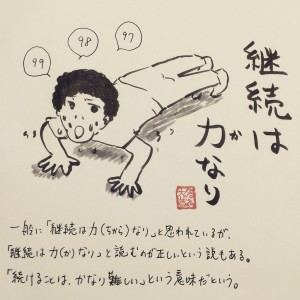 99
98
97
継続は
力なり
か
一般に「継続は力(ちから)なり」と思われているが、
「継続は力(か)なり」と読むのが正しいという説もある。
「続けることは、かなり難しい」という意味だという。